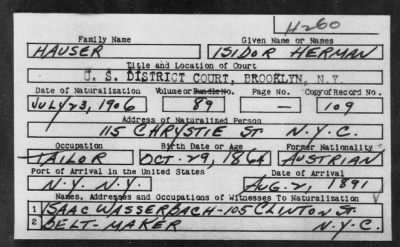 H260
Family Name Given Name or Names
HAUSER ISIDOR HERMAN
Title and Location of Court
U. S. DISTRICT COURT, BROOKLYN, N.Y.
Date of Naturalization Volume or Bundle No. Page No. Copy of Record No.
JULY 23, 1906 89 — 109
Address of Naturalized Person
115 CHRYSTIE ST. N.Y.C.
Occupation Birth Date or Age Former Nationality
TAILOR OCT. 29, 1864 AUSTRIAN
Port of Arrival in the United States Date of Arrival
N.Y. N.Y. AUG. 2, 1891
Names, Addresses and Occupations of Witnesses To Naturalization
1 ISAAC WASSERBACH - 105 CLINTON ST.
2 BELT-MAKER N.Y.C.